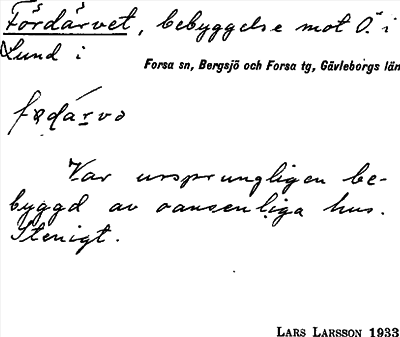 Fördärvet, bebyggelse mot Ö. i
Lund i
Forsa sn, Bergsjö och Forsa tg, Gävleborgs län
Var ursprungligen be-
byggd av oansenliga hus.
Stenigt.
LARS LARSSON 1933